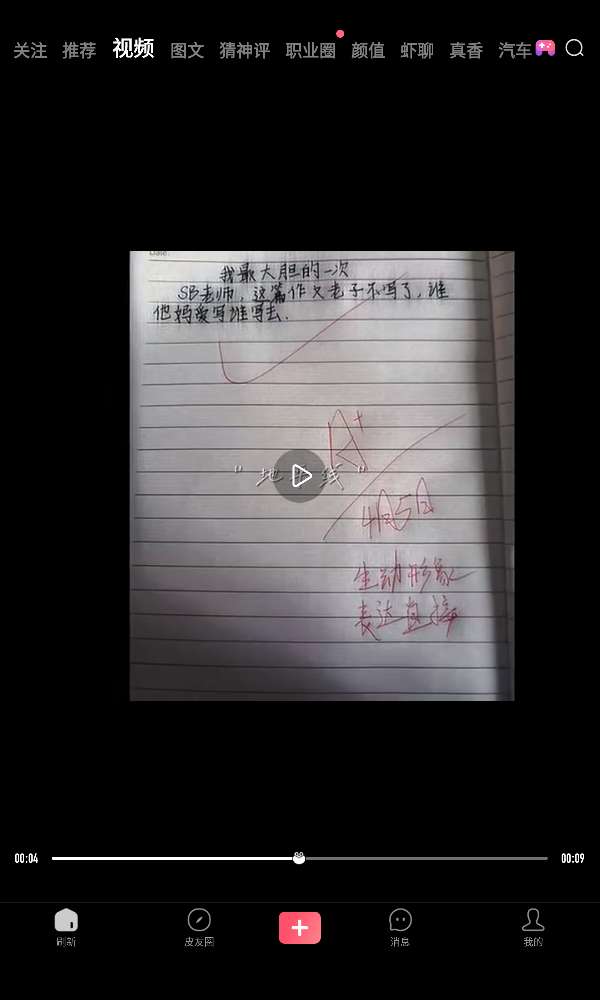 关注 推荐 视频 图文 猜神评 职业圈 颜值 虾聊 真香 汽车
Date:
我最大胆的一次
SB老师,这篇作文老子不写了,谁
他妈爱写谁写去.
A+
"地平线"
4月5日
生动形象
表达直接
00:04 00:09
刷新 皮友圈 消息 我的